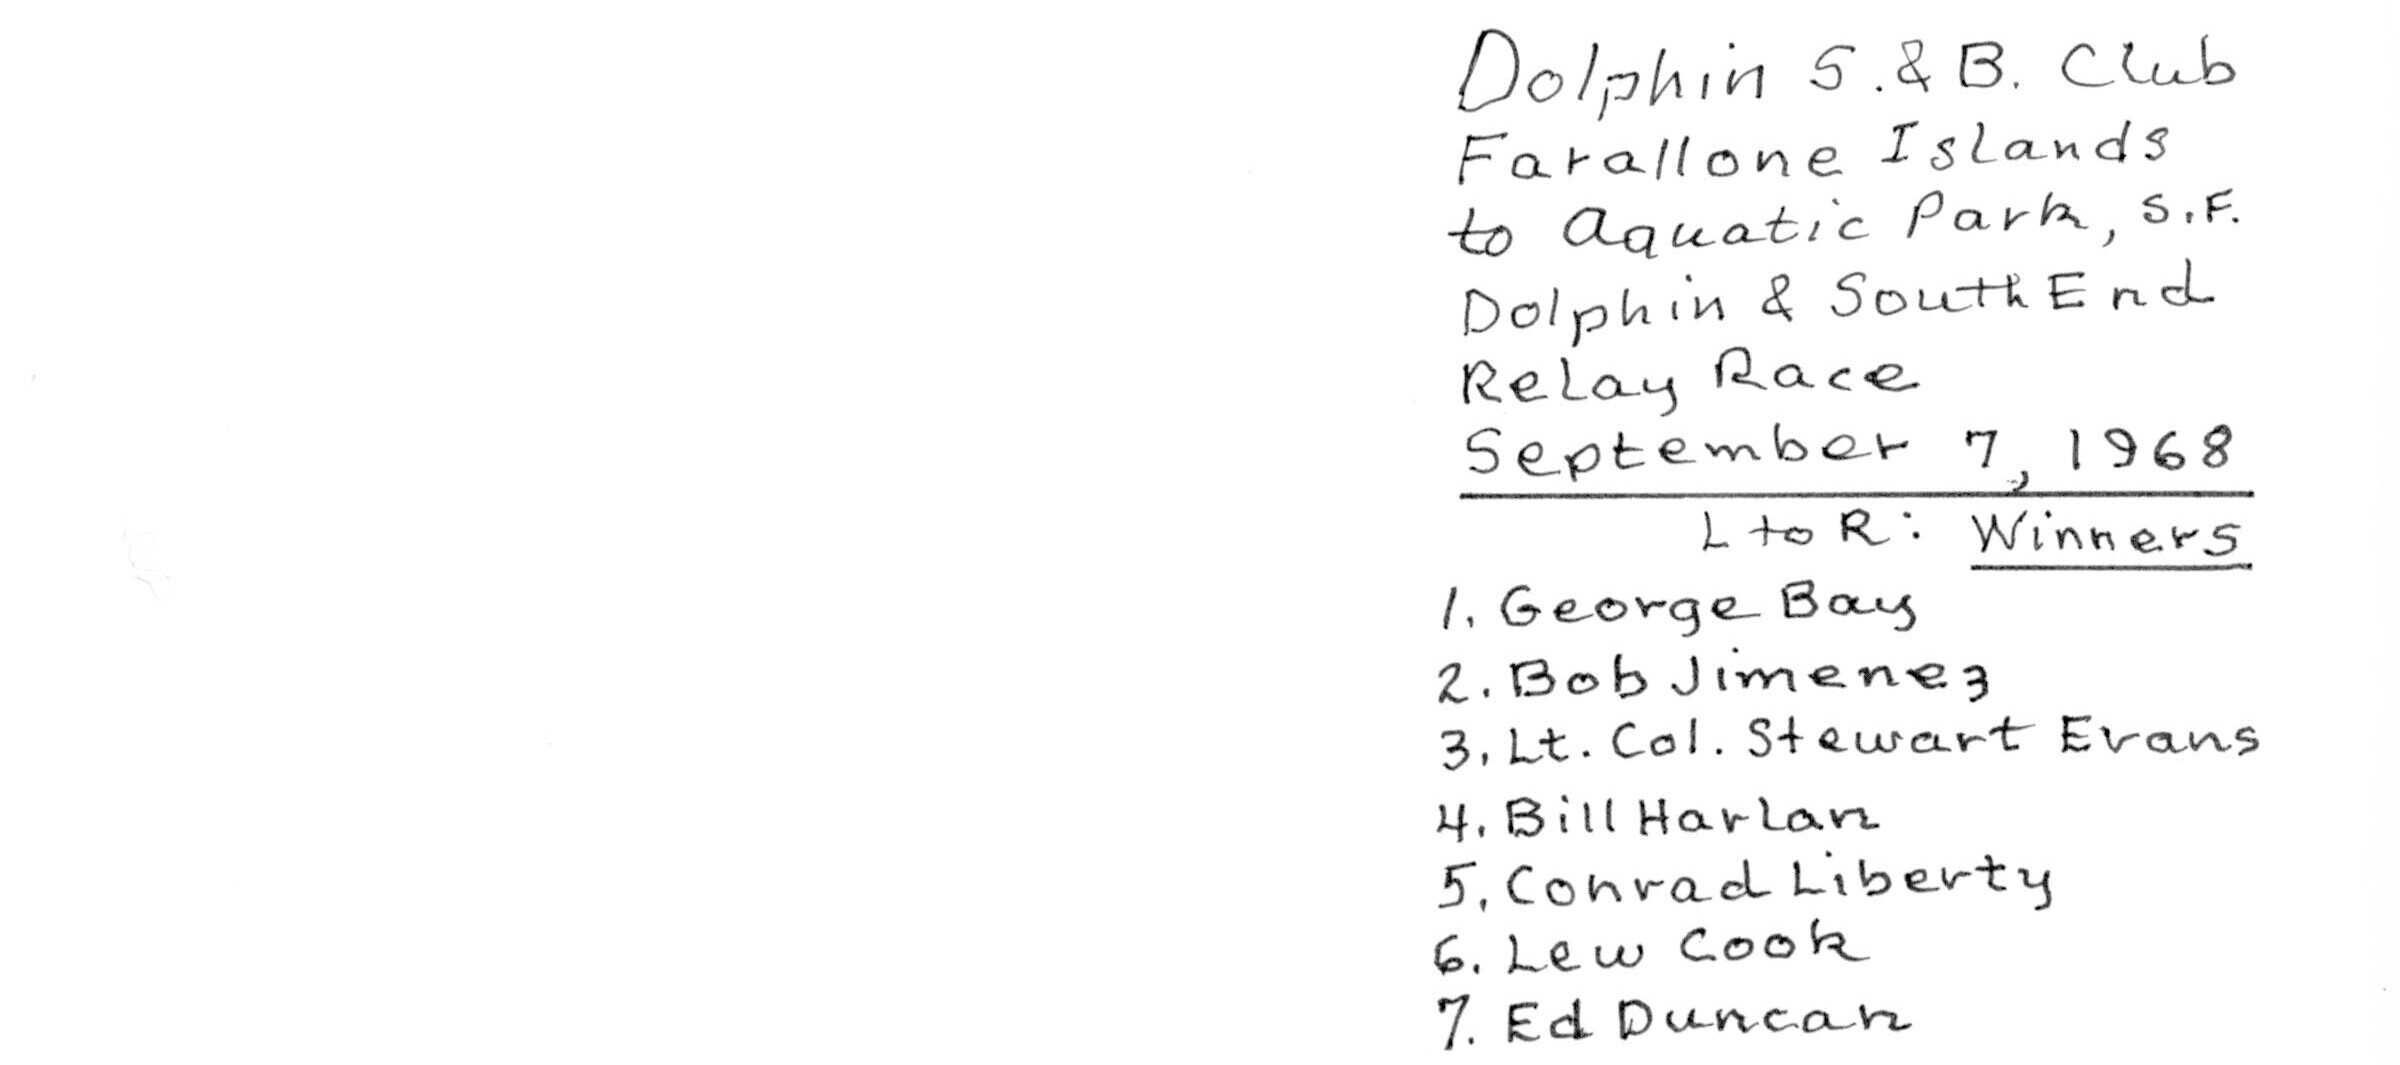 Dolphin S. & B. Club
Farallone Islands
to Aquatic Park, S.F.
Dolphin & South End
Relay Race
September 7, 1968
L to R: Winners
1. George Bay
2. Bob Jimenez
3. Lt. Col. Stewart Evans
4. Bill Harlan
5. Conrad Liberty
6. Lew Cook
7. Ed Duncan